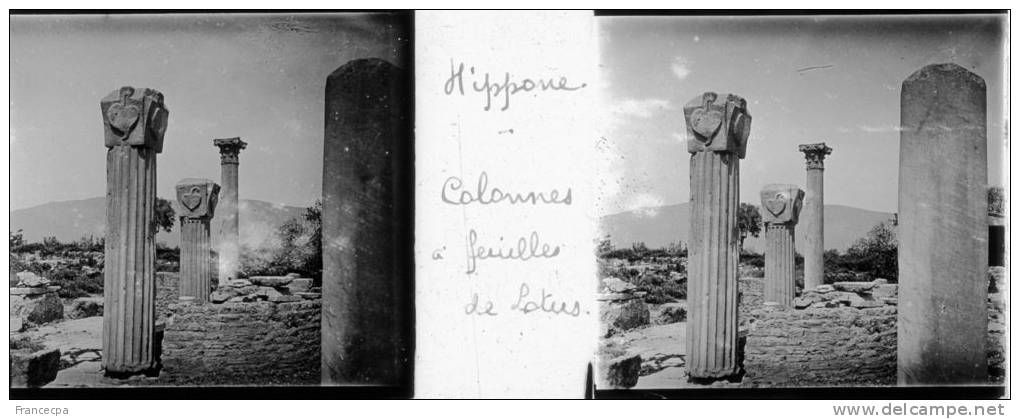 Hippone.
Colonnes
à feuilles
de Lotus.
Francecpa
www.delcampe.net